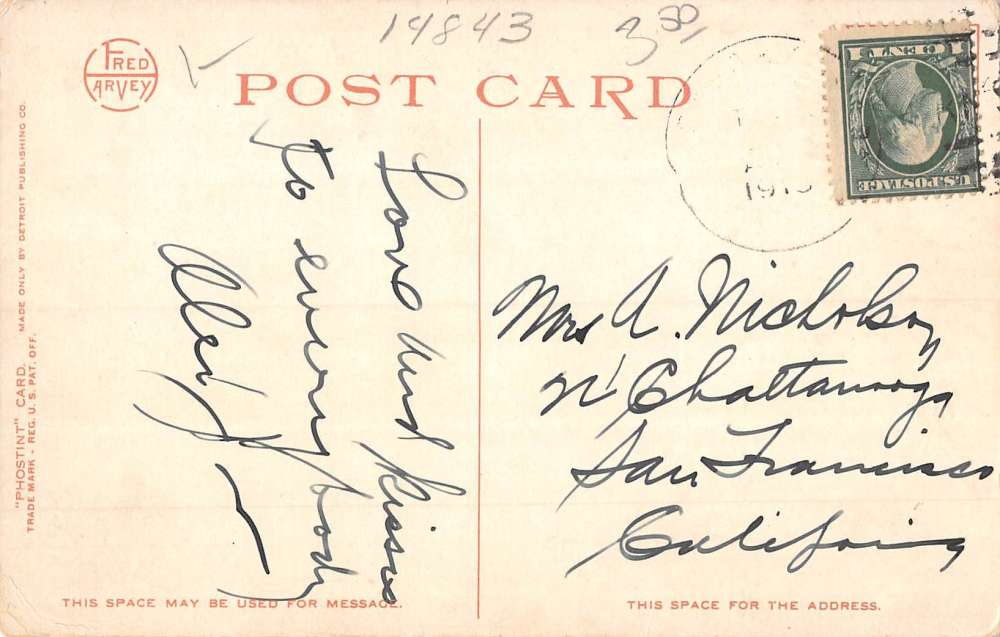 14843
3 30
FRED
HARVEY
POST CARD
1 CENT 1
U.S. POSTAGE
191
"PHOSTINT" CARD. MADE ONLY BY DETROIT PUBLISHING CO.
TRADE MARK - REG. U. S. PAT. OFF.
Love and kisses
to every body
Mrs A. Nicholson
Chattanooga
San Francisco
California
THIS SPACE MAY BE USED FOR MESSAGE.
THIS SPACE FOR THE ADDRESS.